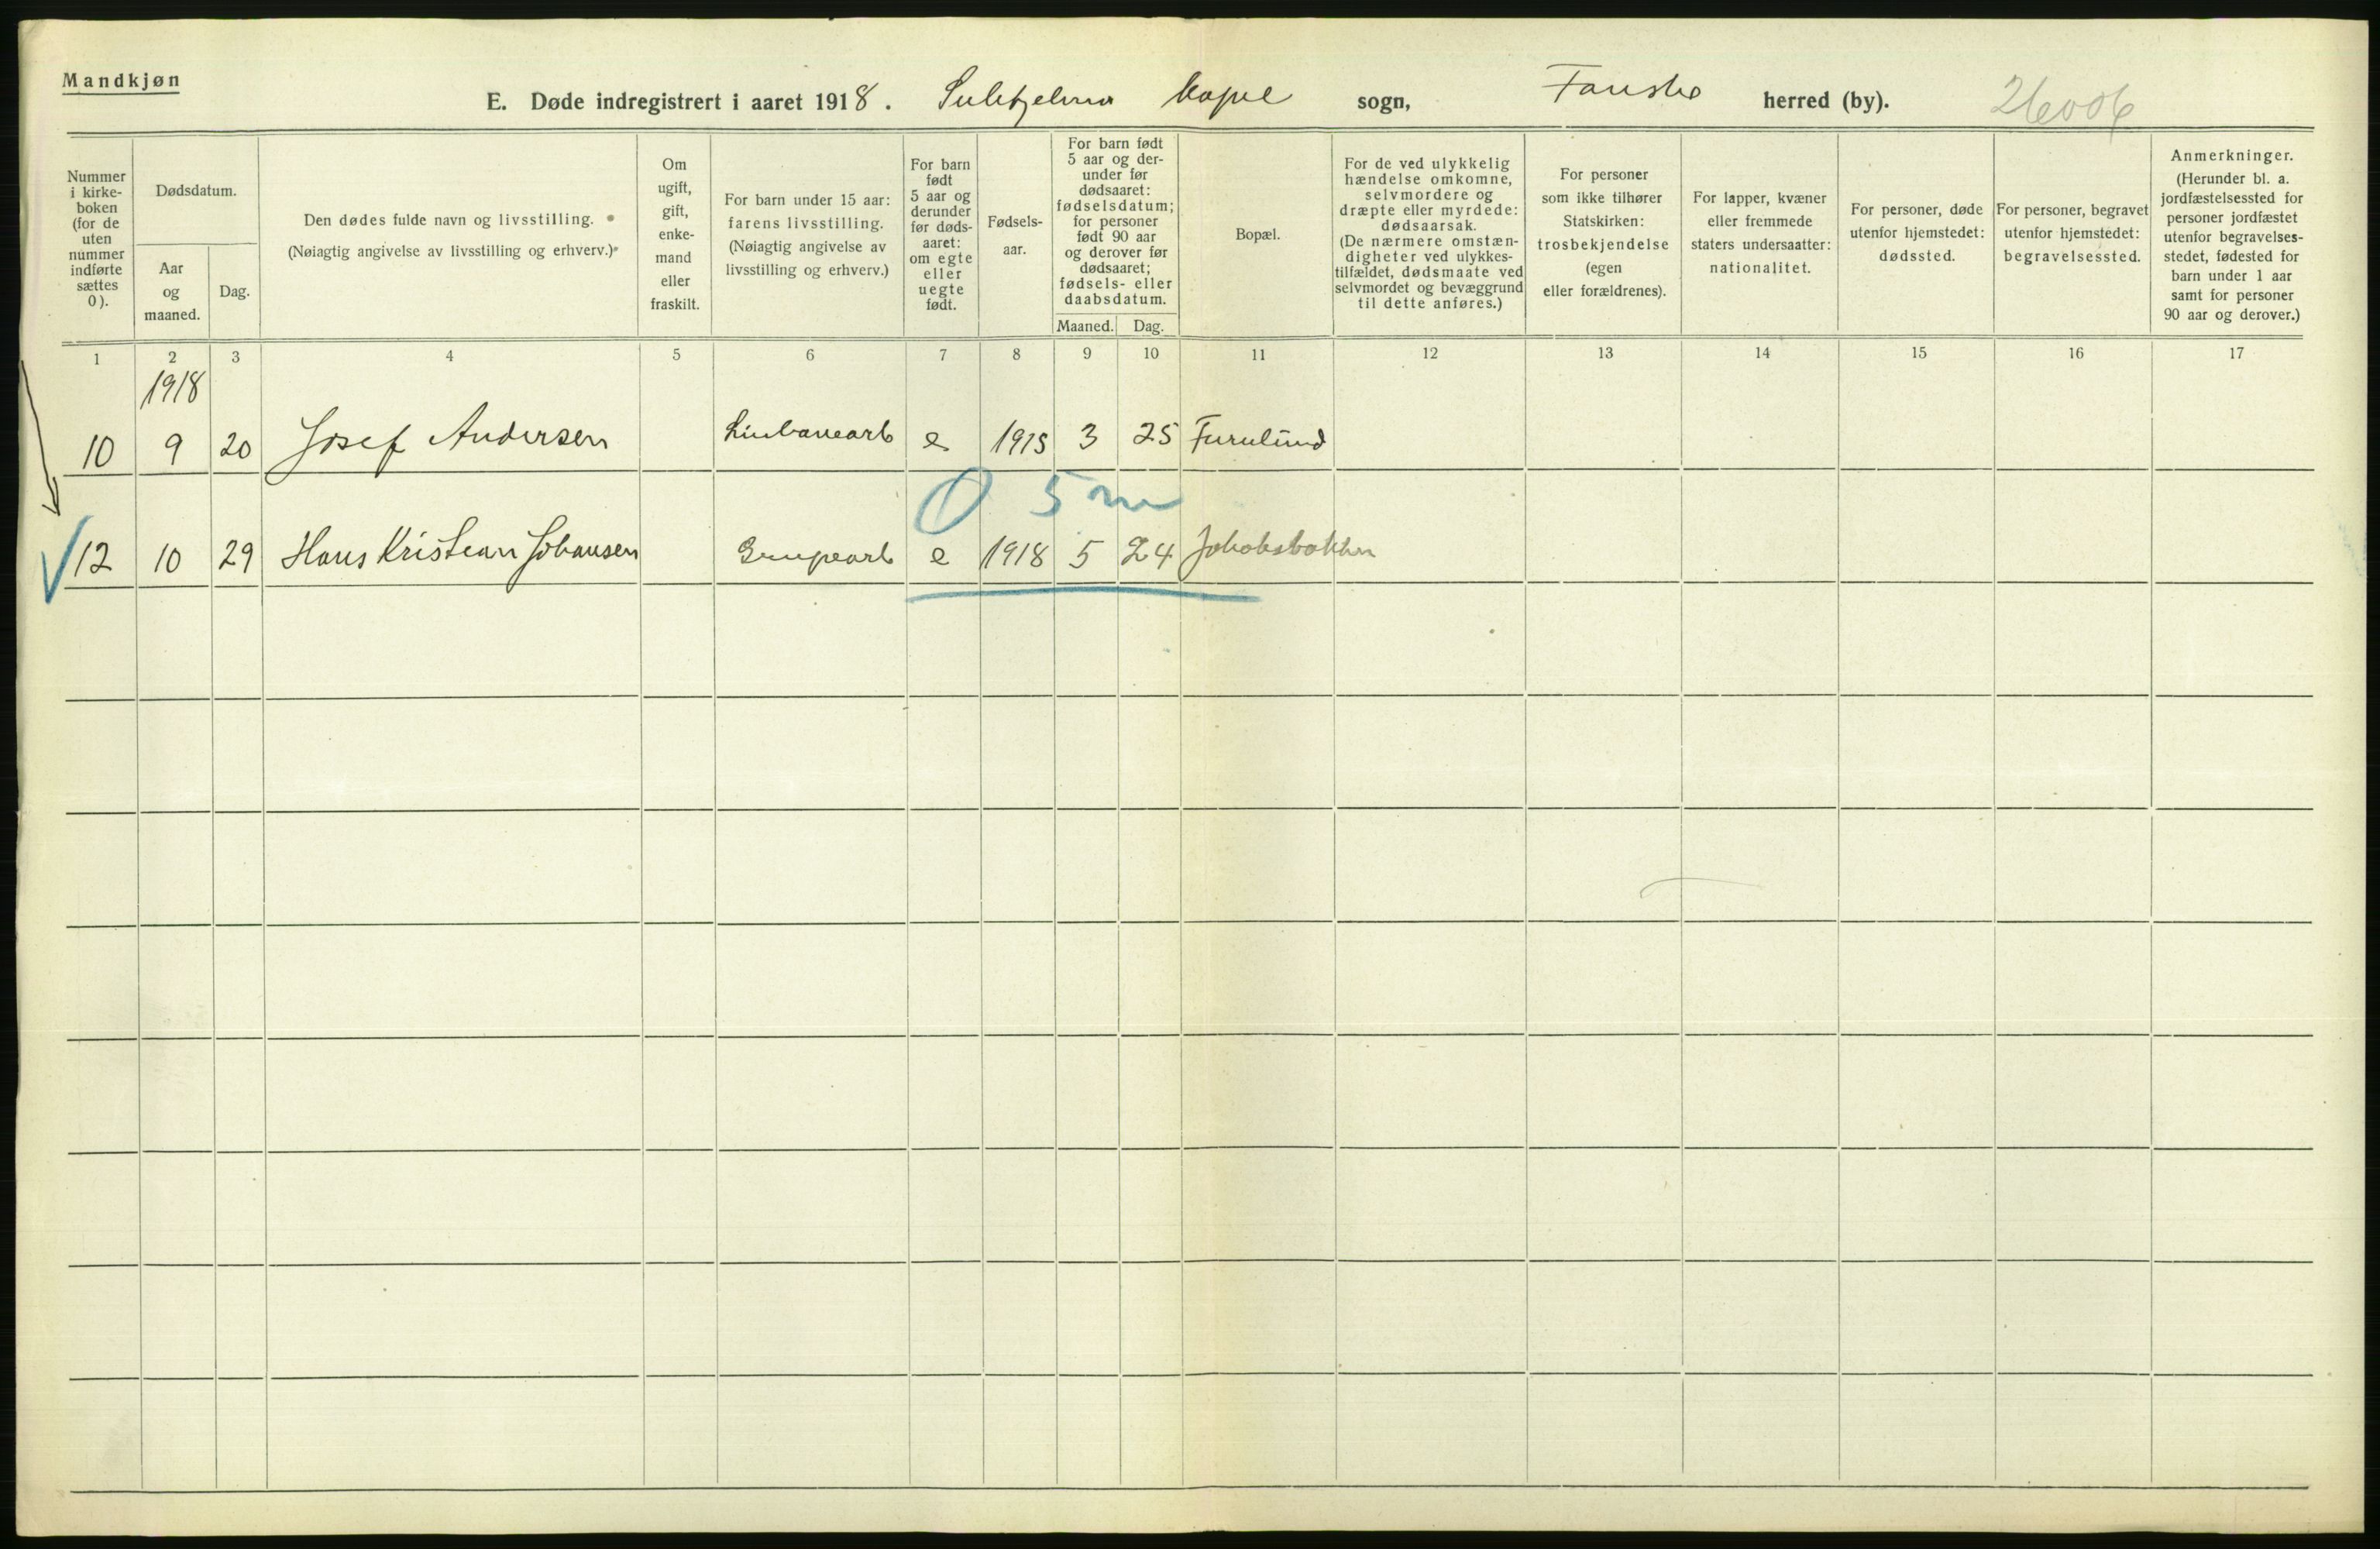 Mandkjøn
E. Døde indregistrert i aaret 1918. Sulitjelma kapel sogn, Fauske herred (by). 26006
Nummer i kirkeboken (for de uten nummer indførte sættes 0).
Dødsdatum.
Aar og maaned.
Dag.
Den dødes fulde navn og livsstilling.
(Nøiagtig angivelse av livsstilling og erhverv.)
Om ugift, gift, enkemand eller fraskilt.
For barn under 15 aar: farens livsstilling. (Nøiagtig angivelse av livsstilling og erhverv.)
For barn født 5 aar og derunder før dødsaaret: om egte eller uegte født.
Fødselsaar.
For barn født 5 aar og derunder før dødsaaret: fødselsdatum; for personer født 90 aar og derover før dødsaaret; fødsels- eller daabsdatum.
Maaned. Dag.
Bopæl.
For de ved ulykkelig hændelse omkomne, selvmordere og dræpte eller myrdede: dødsaarsak. (De nærmere omstændigheter ved ulykkestilfældet, dødsmaate ved selvmordet og bevæggrund til dette anføres.)
For personer som ikke tilhører Statskirken: trosbekjendelse (egen eller forældrenes).
For lapper, kvæner eller fremmede staters undersaatter: nationalitet.
For personer, døde utenfor hjemstedet: dødssted.
For personer, begravet utenfor hjemstedet: begravelsessted.
Anmerkninger. (Herunder bl. a. jordfæstelsessted for personer jordfæstet utenfor begravelsesstedet, fødested for barn under 1 aar samt for personer 90 aar og derover.)
1 2 3 4 5 6 7 8 9 10 11 12 13 14 15 16 17
1918
10 9 20 Josef Andersen Linbanearb e 1915 3 25 Furulund
0 5 m
12 10 29 Hans Kristian Johansen Grupearb e 1918 5 24 Jakobsbakken